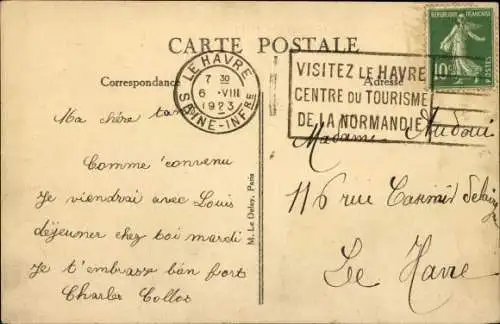 CARTE POSTALE
Correspondance
Adresse
LE HAVRE
7 30
6 -VIII
1923
SEINE-INFRE
VISITEZ LE HAVRE
CENTRE DU TOURISME
DE LA NORMANDIE
REPUBLIQUE FRANÇAISE
10c
POSTES
Ma chère tante
Comme convenu
Je viendrai avec Louis
déjeuner chez toi mardi
Je t'embrasse bien fort
Charles
M. Le Deley, Paris
Madame
116 rue Casimir Delavigne
Le Havre